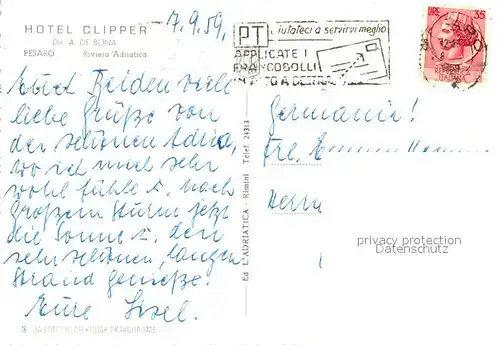 HOTEL CLIPPER
Dir. A. DE BONA
PESARO Riviera Adriatica
7.9.59.
PT
iutateci a servirvi meglio
APPLICATE I
FRANCOBOLLI
IN ALTO A DESTRA
LIRE 35
Euch Beiden viele
liebe Grüße von
der schönen Adria,
wo ich mich sehr
wohl fühle u. nach
großem Sturm jetzt
die Sonne u. den
sehr schönen, langen
Strand genieße!
Eure
Germania!
Frl.
Herrn
Ed. L'ADRIATICA - Rimini Telef. 24313
privacy protection
Datenschutz
KODAK EKTACHROME